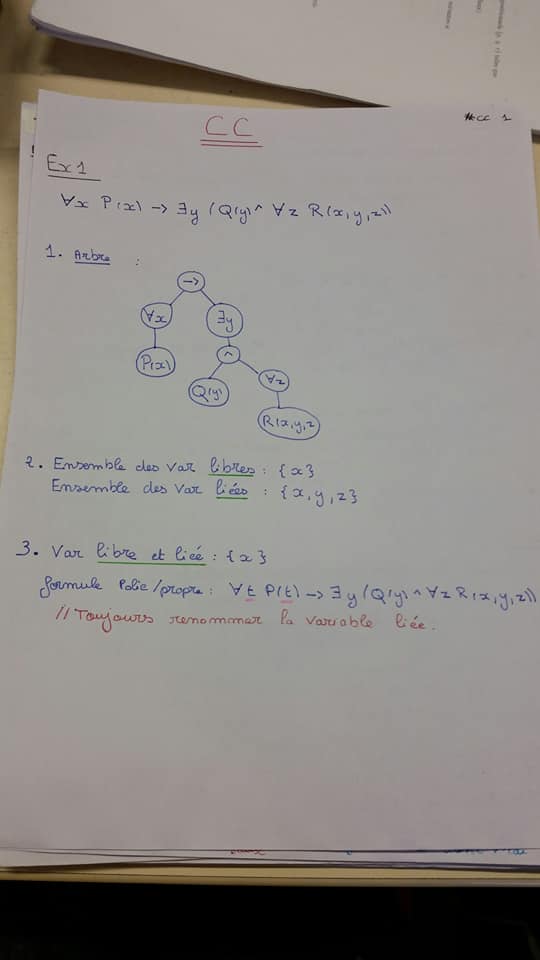 CC
#CC 1
Ex1
∀x P(x) -> ∃y (Q(y) ^ ∀z R(x,y,z))
1. Arbre :
->
∀x ∃y
P(x) ^
Q(y) ∀z
R(x,y,z
2. Ensemble des var libres : {x}
Ensemble des var liées : {x,y,z}
3. Var libre et liée : {x}
formule Polie/propre : ∀t P(t) -> ∃y (Q(y) ^ ∀z R(x,y,z))
// Toujours renommer la variable liée.